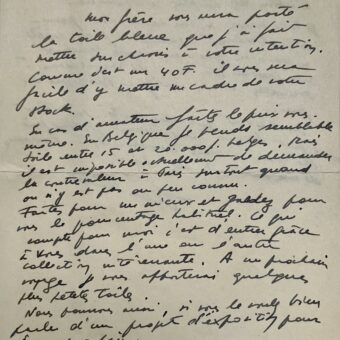 mon frère vous aura porté
la toile bleue que j'ai fait
mettre sur chassis à votre intention.
Comme c'est un 40 F. il vous sera
facile d'y mettre un cadre de votre
stock.
En cas d'amateur faites le prix vous-
même. En Belgique je vends semblable
toile entre 15 et 20.000 f. belges, mais
il est impossible actuellement de demander
la contrevaleur à Paris surtout quand
on n'y est pas ou peu connu.
Faites pour un mieux et gardez pour
vous le pourcentage habituel. Ce qui
compte pour moi c'est d'entrer grâce
à vous dans l'une ou l'autre
collection intéressante. A un prochain
voyage je vous apporterai quelques
plus petites toiles.
Nous pourrons aussi, si vous le voulez bien
parler d'un projet d'exposition pour